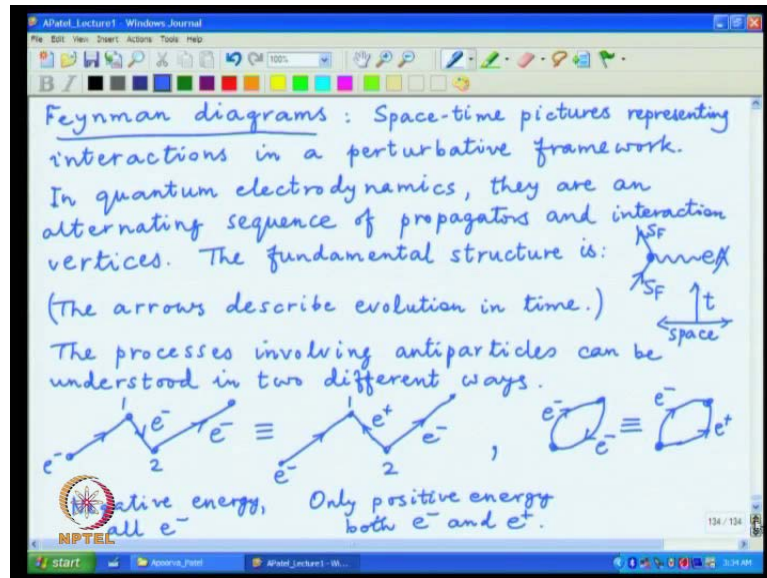 APatel_Lecture1 - Windows Journal
File Edit View Insert Actions Tools Help
100%
B I
Feynman diagrams : Space-time pictures representing
interactions in a perturbative framework.
In quantum electrodynamics, they are an
alternating sequence of propagators and interaction
vertices. The fundamental structure is:
S_F
eA̸
S_F
(The arrows describe evolution in time.)
t
space
The processes involving antiparticles can be
understood in two different ways.
1 e⁻ e⁻ e⁻ 2 ≡ 1 e⁺ e⁻ e⁻ 2 , e⁻ e⁻ ≡ e⁻ e⁺
Negative energy, Only positive energy
all e⁻ both e⁻ and e⁺.
NPTEL
134 / 134
start Apoorva_Patel APatel_Lecture1 - Wi... 3:34 AM